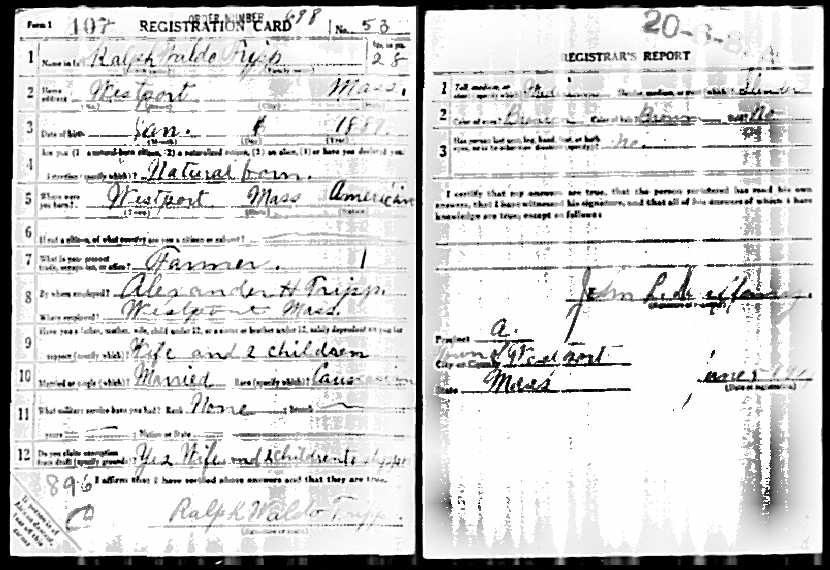 ORDER NUMBER 698
Form 1 107 REGISTRATION CARD No. 53
1 Name in full Ralph Waldo Tripp Age, in yrs. 28
2 Home address Westport Mass.
(No.) (City)
3 Date of birth Jan. 1889
(Month) (Day) (Year)
4 Are you (1) a natural-born citizen, (2) a naturalized citizen, (3) an alien, (4) or have you declared your
intention (specify which)? Natural born.
5 Where were you born? Westport Mass American
(Town) (State) (Nation)
6 If not a citizen, of what country are you a citizen or subject?
7 What is your present trade, occupation, or office? Farmer.
8 By whom employed? Alexander H Tripp.
Where employed? Westport Mass.
9 Have you a father, mother, wife, child under 12, or a sister or brother under 12, solely dependent on you for
support (specify which)? Wife and 2 children
10 Married or single (which)? Married Race (specify which)? Caucasian
11 What military service have you had? Rank None Branch
years Nation or State
12 Do you claim exemption from draft (specify grounds)? Yes Wife and 2 children's support
896 I affirm that I have verified above answers and that they are true.
Ralph Waldo Tripp.
(Signature of)
If person is of
African descent,
tear off this
corner
REGISTRAR'S REPORT
1 Tall, medium, or short (specify which)? Med Slender, medium, or stout (which)? Slender
2 Color of eyes? Brown Color of hair? Brown Bald? No
3 Has person lost arm, leg, hand, foot, or both
eyes, or is he otherwise disabled (specify)? No
I certify that my answers are true, that the person registered has read his own
answers, that I have witnessed his signature, and that all of his answers of which I have
knowledge are true, except as follows:
John L.
(Signature of registrar)
Precinct A.
City or County Town of Westport
State Mass June 5
(Date of registration)